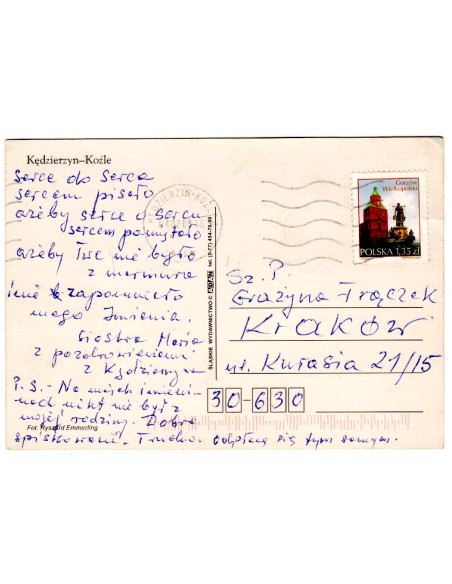 Kędzierzyn–Koźle
Serce do Serca
sercem pisało
ażeby serce o sercu
sercem pamiętało
ażeby Twe nie było
z marmuru
i nie zapomniało
mego Imienia.
Siostra Maria
z pozdrowieniami
z Kędzierzyna
P.S. - Na mych imieni-
nach nikt nie był z
mojej rodziny. Dobre
spiskowanie. Trudno. odpłacę się tym samym.
Fot. Ryszard Emmerling
ŚLĄSKIE WYDAWNICTWO
tel. (0-77) 454-75-90
KĘDZIERZYN-KOŹLE
Gorzów
Wielkopolski
POLSKA 1,35 zł
Sz. P.
Grażyna Trączek
Kraków
ul. Kurasia 21/15
30-630